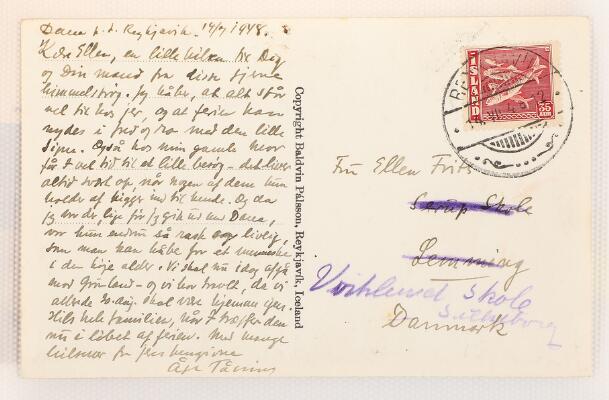 Dana p.t. Reykjavik. 14/7 1948.
Kære Ellen, en lille hilsen til Dig
og Din mand fra disse fjerne
himmelstrøg. Jeg håber, at alt står
vel til hos jer, og at ferien kan
nydes i fred og ro med den lille
Også hos min gamle mor
får I vel tid til et lille besøg - det liver
altid svært op, når nogen af dem hun
holder af kigger ind til hende. Og da
jeg lige før jeg gik ud med Dana,
var hun endnu så rask og livlig,
som man kan håbe for et menneske
i den høje alder. Vi skal nu i dag afgå
mod Grønland - og vi har travlt, da vi
allerede 30 aug. skal være hjemme igen.
Hils hele familien, når I træffer dem
nu i løbet af ferien. Med mange
hilsner fra Jeres hengivne
Åge
Copyright Baldvin Pálsson, Reykjavík, Iceland
ISLAND
35
AUR
Fru Ellen Friis
Skole
Lemming
Virklund Skole
Silkeborg
Danmark